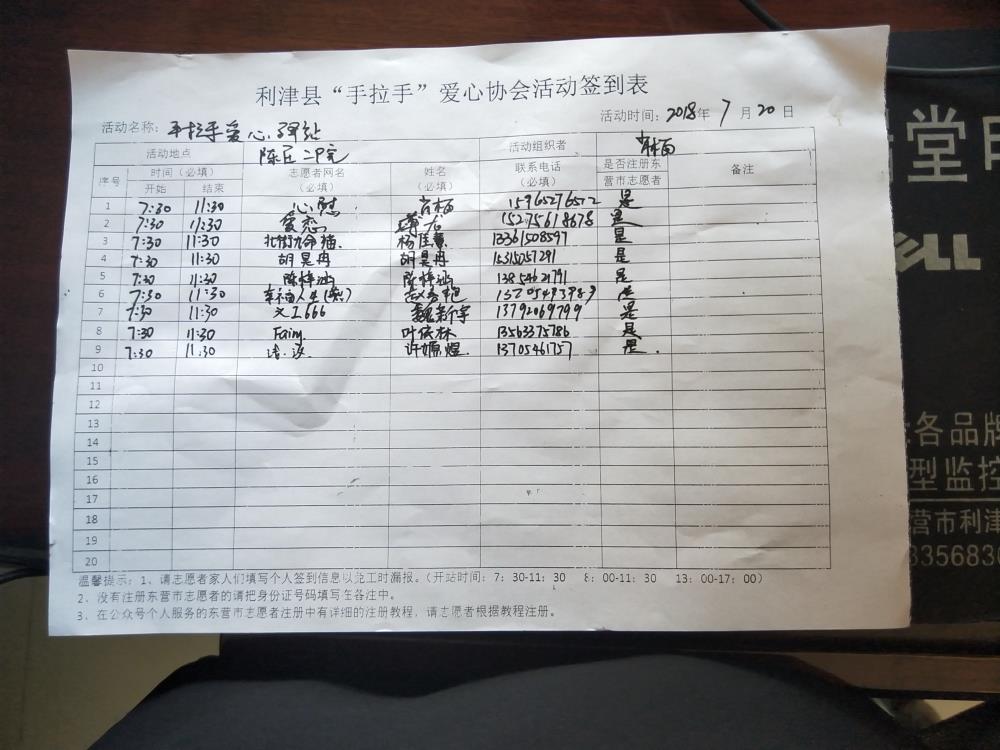 利津县“手拉手”爱心协会活动签到表
活动名称：手拉手爱心驿站 活动时间：2018年 7 月 20 日
活动地点 陈庄二院 活动组织者 肖栢
序号 时间（必填） 志愿者网名（必填） 姓名（必填） 联系电话（必填） 是否注册东营市志愿者 备注
开始 结束
1 7:30 11:30 心慰 肖栢 15965276572 是
2 7:30 11:30 爱恋 15275618678 是
3 7:30 11:30 北街九命猫. 13361508597 是
4 7:30 11:30 胡昊冉 胡昊冉 15315057291 是
5 7:30 11:30 陈梓涵 陈梓涵 13854621791 是
6 7:30 11:30 幸福人生 是
7 7:30 11:30 文工666 魏新宇 13792069799 是
8 7:30 11:30 叶依林 13563375786 是
9 7:30 11:30 13705461757 是.
10
11
12
13
14
15
16
17
18
19
20
温馨提示：1、请志愿者家人们填写个人签到信息以免工时漏报。（开站时间：7：30-11：30 8：00-11：30 13：00-17：00）
2、没有注册东营市志愿者的请把身份证号码填写在备注中。
3、在公众号个人服务的东营市志愿者注册中有详细的注册教程，请志愿者根据教程注册。
堂
各品牌
型监控
营市利津
335683